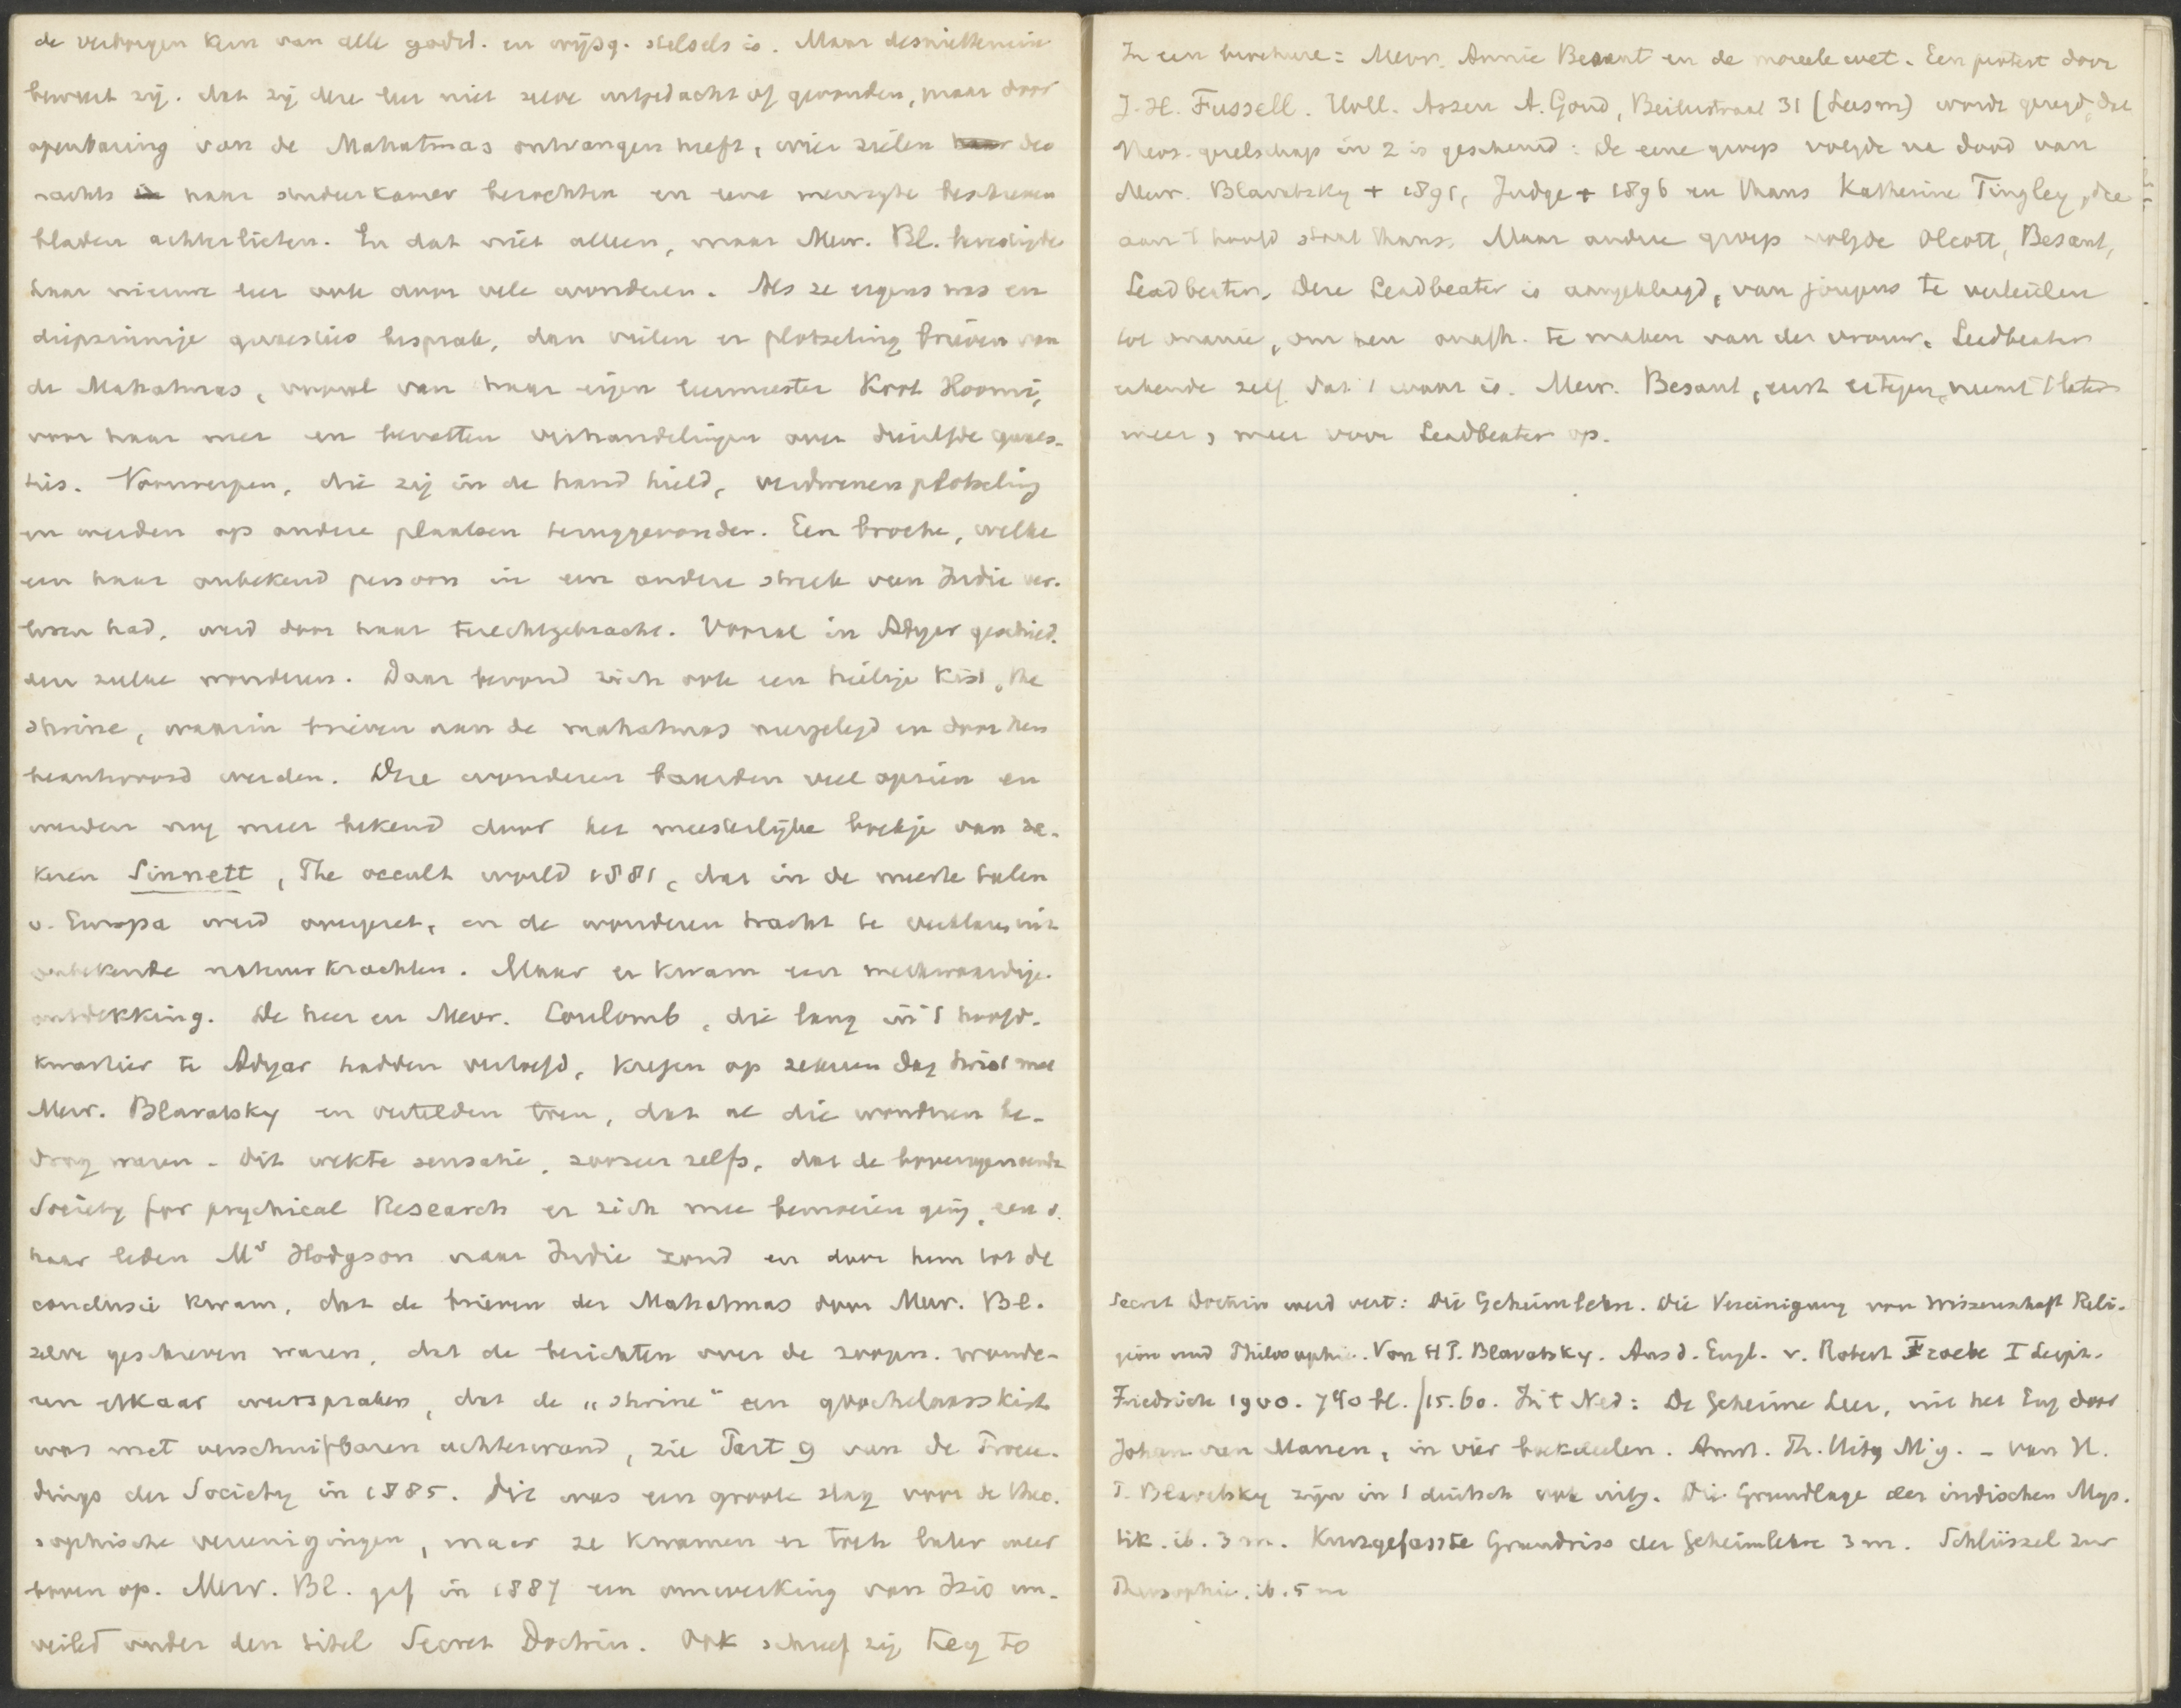 de verborgen kern van alle godsd. en wijsg. stelsels is. Maar desniettemin
beweert zij. dat zij deze leer niet zelve uitgedacht of gevonden, maar door
openbaring van de Mahatmas ontvangen heeft, wier zielen des
nachts haar studeerkamer bezochten en eene menigte beschreven
bladen achterlieten. En dat niet alleen, maar Mevr. Bl. bevestigde
haar nieuwe leer ook door vele wonderen. Als ze ergens was en
diepzinnige quaesties besprak, dan vielen er plotseling brieven van
de Mahatmas, vooral van haar eigen leermeester Koot Hoomi,
voor haar neer en bevatten verhandelingen over diezelfde quaes-
ties. Voorwerpen, die zij in de hand hield, verdwenen plotseling
en werden op andere plaatsen teruggevonden. Een broche, welke
een haar onbekend persoon in een andere streek van Indie ver-
loren had, werd door haar terechtgebracht. Vooral in Adyar geschied.
den zulke wonderen. Daar bevond zich ook een heilige kist, the
shrine, waarin brieven aan de mahatmas neergelegd en door hen
beantwoord werden. Deze wonderen baarden veel opzien en
werden nog meer bekend door het meesterlijke boekje van ze-
keren Sinnett, The occult world 1881, dat in de meeste talen
v. Europa werd overgezet, en de wonderen tracht te verklaren uit
onbekende natuurkrachten. Maar er kwam een merkwaardige
ontdekking. De heer en Mevr. Coulomb, die lang in 't hoofd-
kwartier te Adyar hadden vertoefd, kregen op zekeren dag twist met
Mevr. Blavatsky en vertelden toen, dat al die wonderen be-
drog waren - dit wekte sensatie, zoozeer zelfs, dat de bovengenoemde
Society for psychical Research er zich mee bemoeien ging, een v.
haar leden Mr Hodgson naar Indie zond en door hem tot de
conclusie kwam, dat de brieven der Mahatmas door Mevr. Bl.
zelve geschreven waren, dat de berichten over de zoogen. wonde-
ren elkaar weerspraken, dat de „shrine" een goochelaarskist
was met verschuifbaren achterwand, zie Part 9 van de Procee-
dings der Society in 1885. Dit was een groote slag voor de theo-
sophische vereenigingen, maar ze kwamen er toch later weer
boven op. Mevr. Bl. gaf in 1887 een omwerking van Isis un-
veiled onder den titel Secret Doctrin. Ook schreef zij Key to
In een brochure: Mevr. Annie Besant en de moreele wet. Een protest door
J. H. Fussell. Uitl. Assen A. Goud, Beilerstraat 31 wordt gezegd, dat
theos. gezelschap in 2 is gescheurd: de eene groep volgde na dood van
Mevr. Blavatsky + 1891, Judge + 1896 en thans Katherine Tingley, die
aan 't hoofd staat thans. Maar andere groep volgde Olcott, Besant,
Leadbeater. Deze Leadbeater is aangeklaagd, van jongens te verleiden
tot onanie, om hen onafh. te maken van der vrouw. Leadbeater
erkende zelf dat 't waar is. Mevr. Besant, eerst ertegen, neemt 't later
meer, meer voor Leadbeater op.
Secret Doctrin werd vert: Die Geheimlehre. Die Vereinigung von Wissenschaft Reli-
gion und Philosophie. Von H P. Blavatsky. Aus d. Engl. v. Robert Froebe I Leipz.
Friedrich 1900. 740 bl. f15.60. In 't Ned: De Geheime Leer, uit het Eng door
Johan van Manen, in vier boekdeelen. Amst. Th. Uitg Mij. - Van H.
P. Blavatsky zijn in 't duitsch ook uitg. Die Grundlage der indischen Mys-
tik. ib. 3 m. Kurzgefasste Grundriss der Geheimlehre 3 m. Schlüssel zur
Theosophie. ib. 5 m